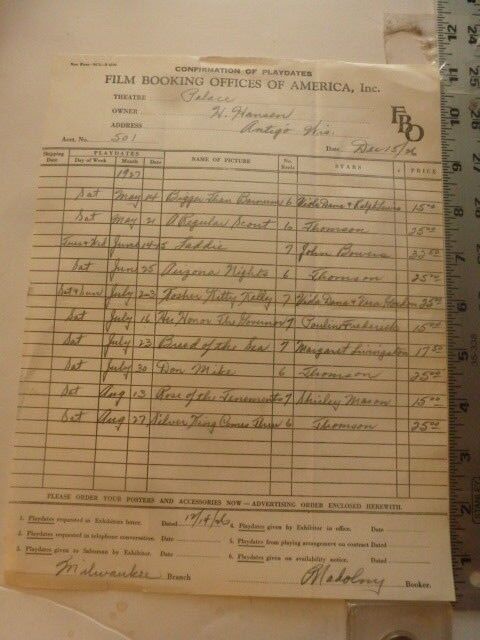 CONFIRMATION OF PLAYDATES
FILM BOOKING OFFICES OF AMERICA, Inc.
THEATRE Palace
OWNER H. Hansen
FBO
ADDRESS Antigo Wis.
Acct. No. 501 Date Dec 15/26
PLAYDATES
Shipping Date Day of Week Month Date NAME OF PICTURE No. Reels STARS PRICE
1927
Sat May 14 Bigger Than Barnums 6 Viola Dana & Ralph Lewis 15.00
Sat May 21 A Regular Scout 6 Thomson 25.00
Tues & Wed June 14-15 Laddie 7 John Bowers 32.50
Sat June 25 Arizona Nights 6 Thomson 25.00
Sat & Sun July 2-3 Kosher Kitty Kelly 7 Viola Dana & Vera Gordon 25.00
Sat July 16 Her Honor The Governor 7 Pauline Frederick 15.00
Sat July 23 Breed of the Sea 7 Margaret Livingston 17.50
Sat July 30 Don Mike 6 Thomson 25.00
Sat Aug 13 Rose of the Tenements 7 Shirley Mason 15.00
Sat Aug 27 Silver King Comes Thru 6 Thomson 25.00
PLEASE ORDER YOUR POSTERS AND ACCESSORIES NOW—ADVERTISING ORDER ENCLOSED HEREWITH.
1. Playdates requested in Exhibitors letter. Dated 12/14/26 4. Playdates given by Exhibitor in office. Date
2. Playdates requested in telephone conversation. Date 5. Playdates from playing arrangement on contract Dated
3. Playdates given to Salesman by Exhibitor. Date 6. Playdates given on availability notice. Date
Milwaukee Branch Booker.
12
11
10
9
8
7
6
5
4
3
2
1